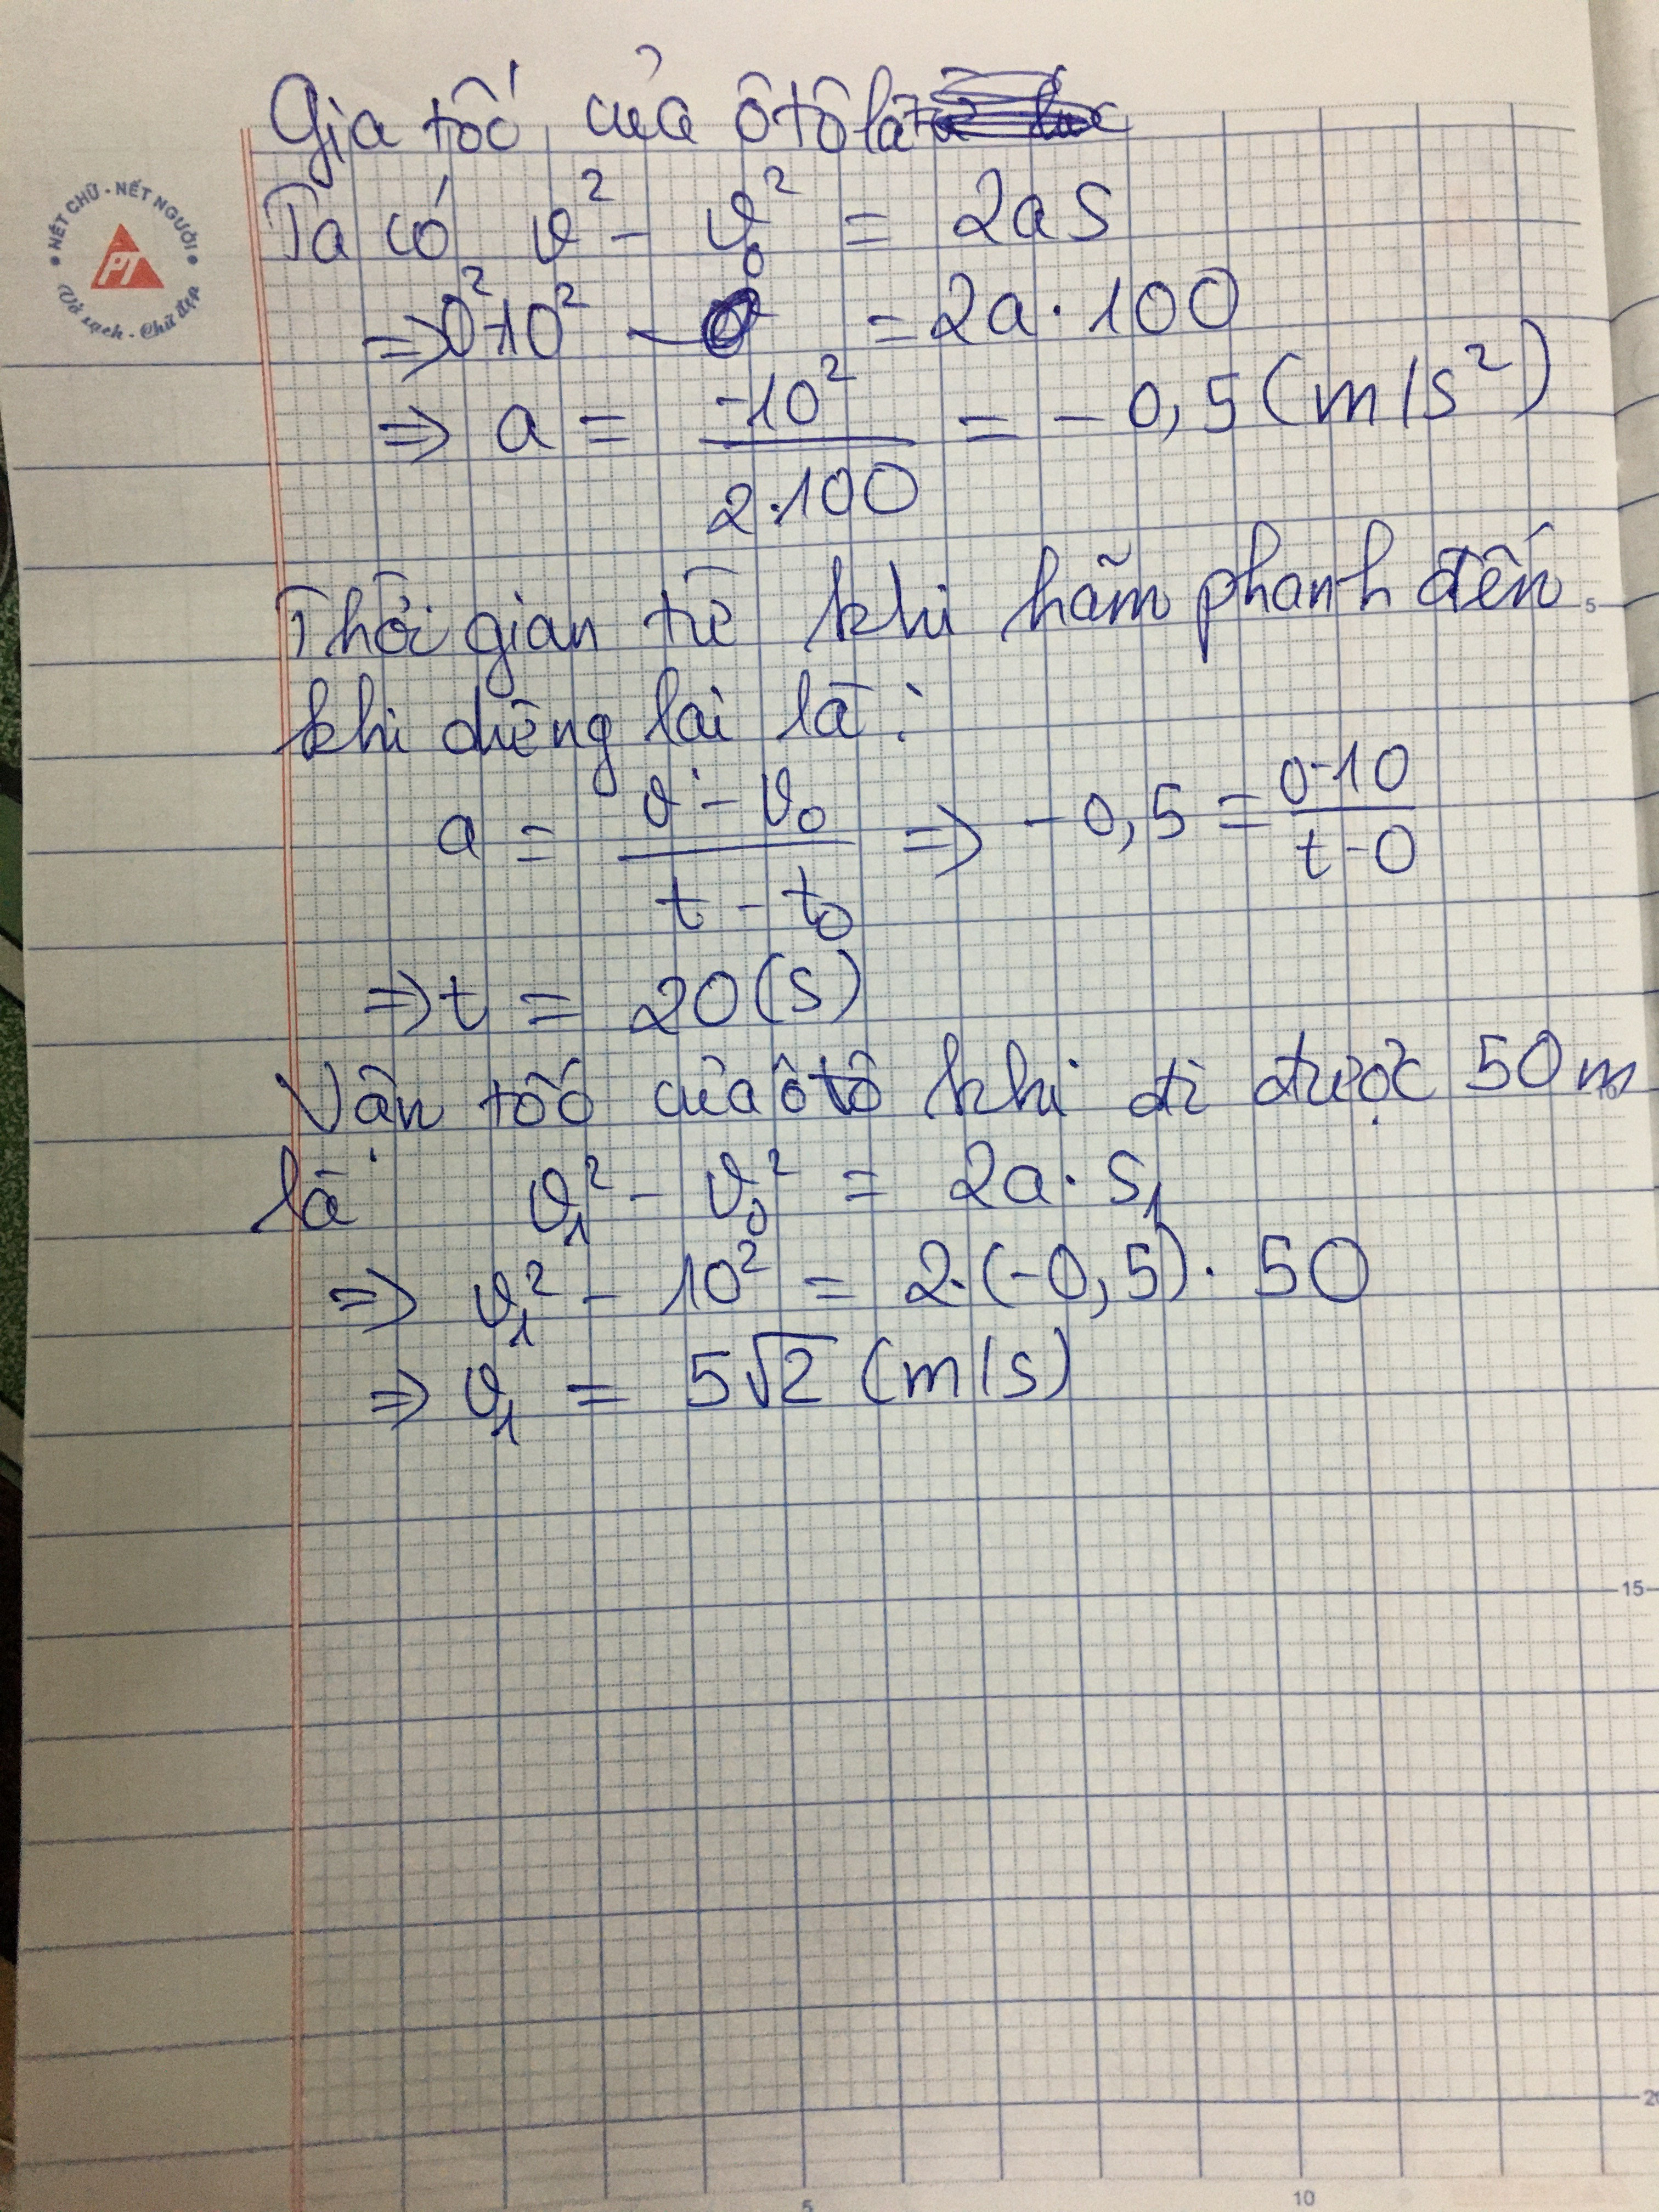 NÉT CHỮ - NẾT NGƯỜI
PT
Vở sạch - Chữ đẹp
Gia tốc của ôtô là
Ta có v² - v₀² = 2aS
=> 0² - 10² = 2a . 100
=> a = -10² / 2.100 = -0,5 (m/s²)
Thời gian từ khi hãm phanh đến
khi dừng lại là :
a = v - v₀ / t - t₀ => -0,5 = 0-10 / t-0
=> t = 20 (s)
Vận tốc của ôtô khi đi được 50m
là v₁² - v₀² = 2a . S₁
=> v₁² - 10² = 2.(-0,5) . 50
=> v₁ = 5√2 (m/s)
5
10
15
20
5
10